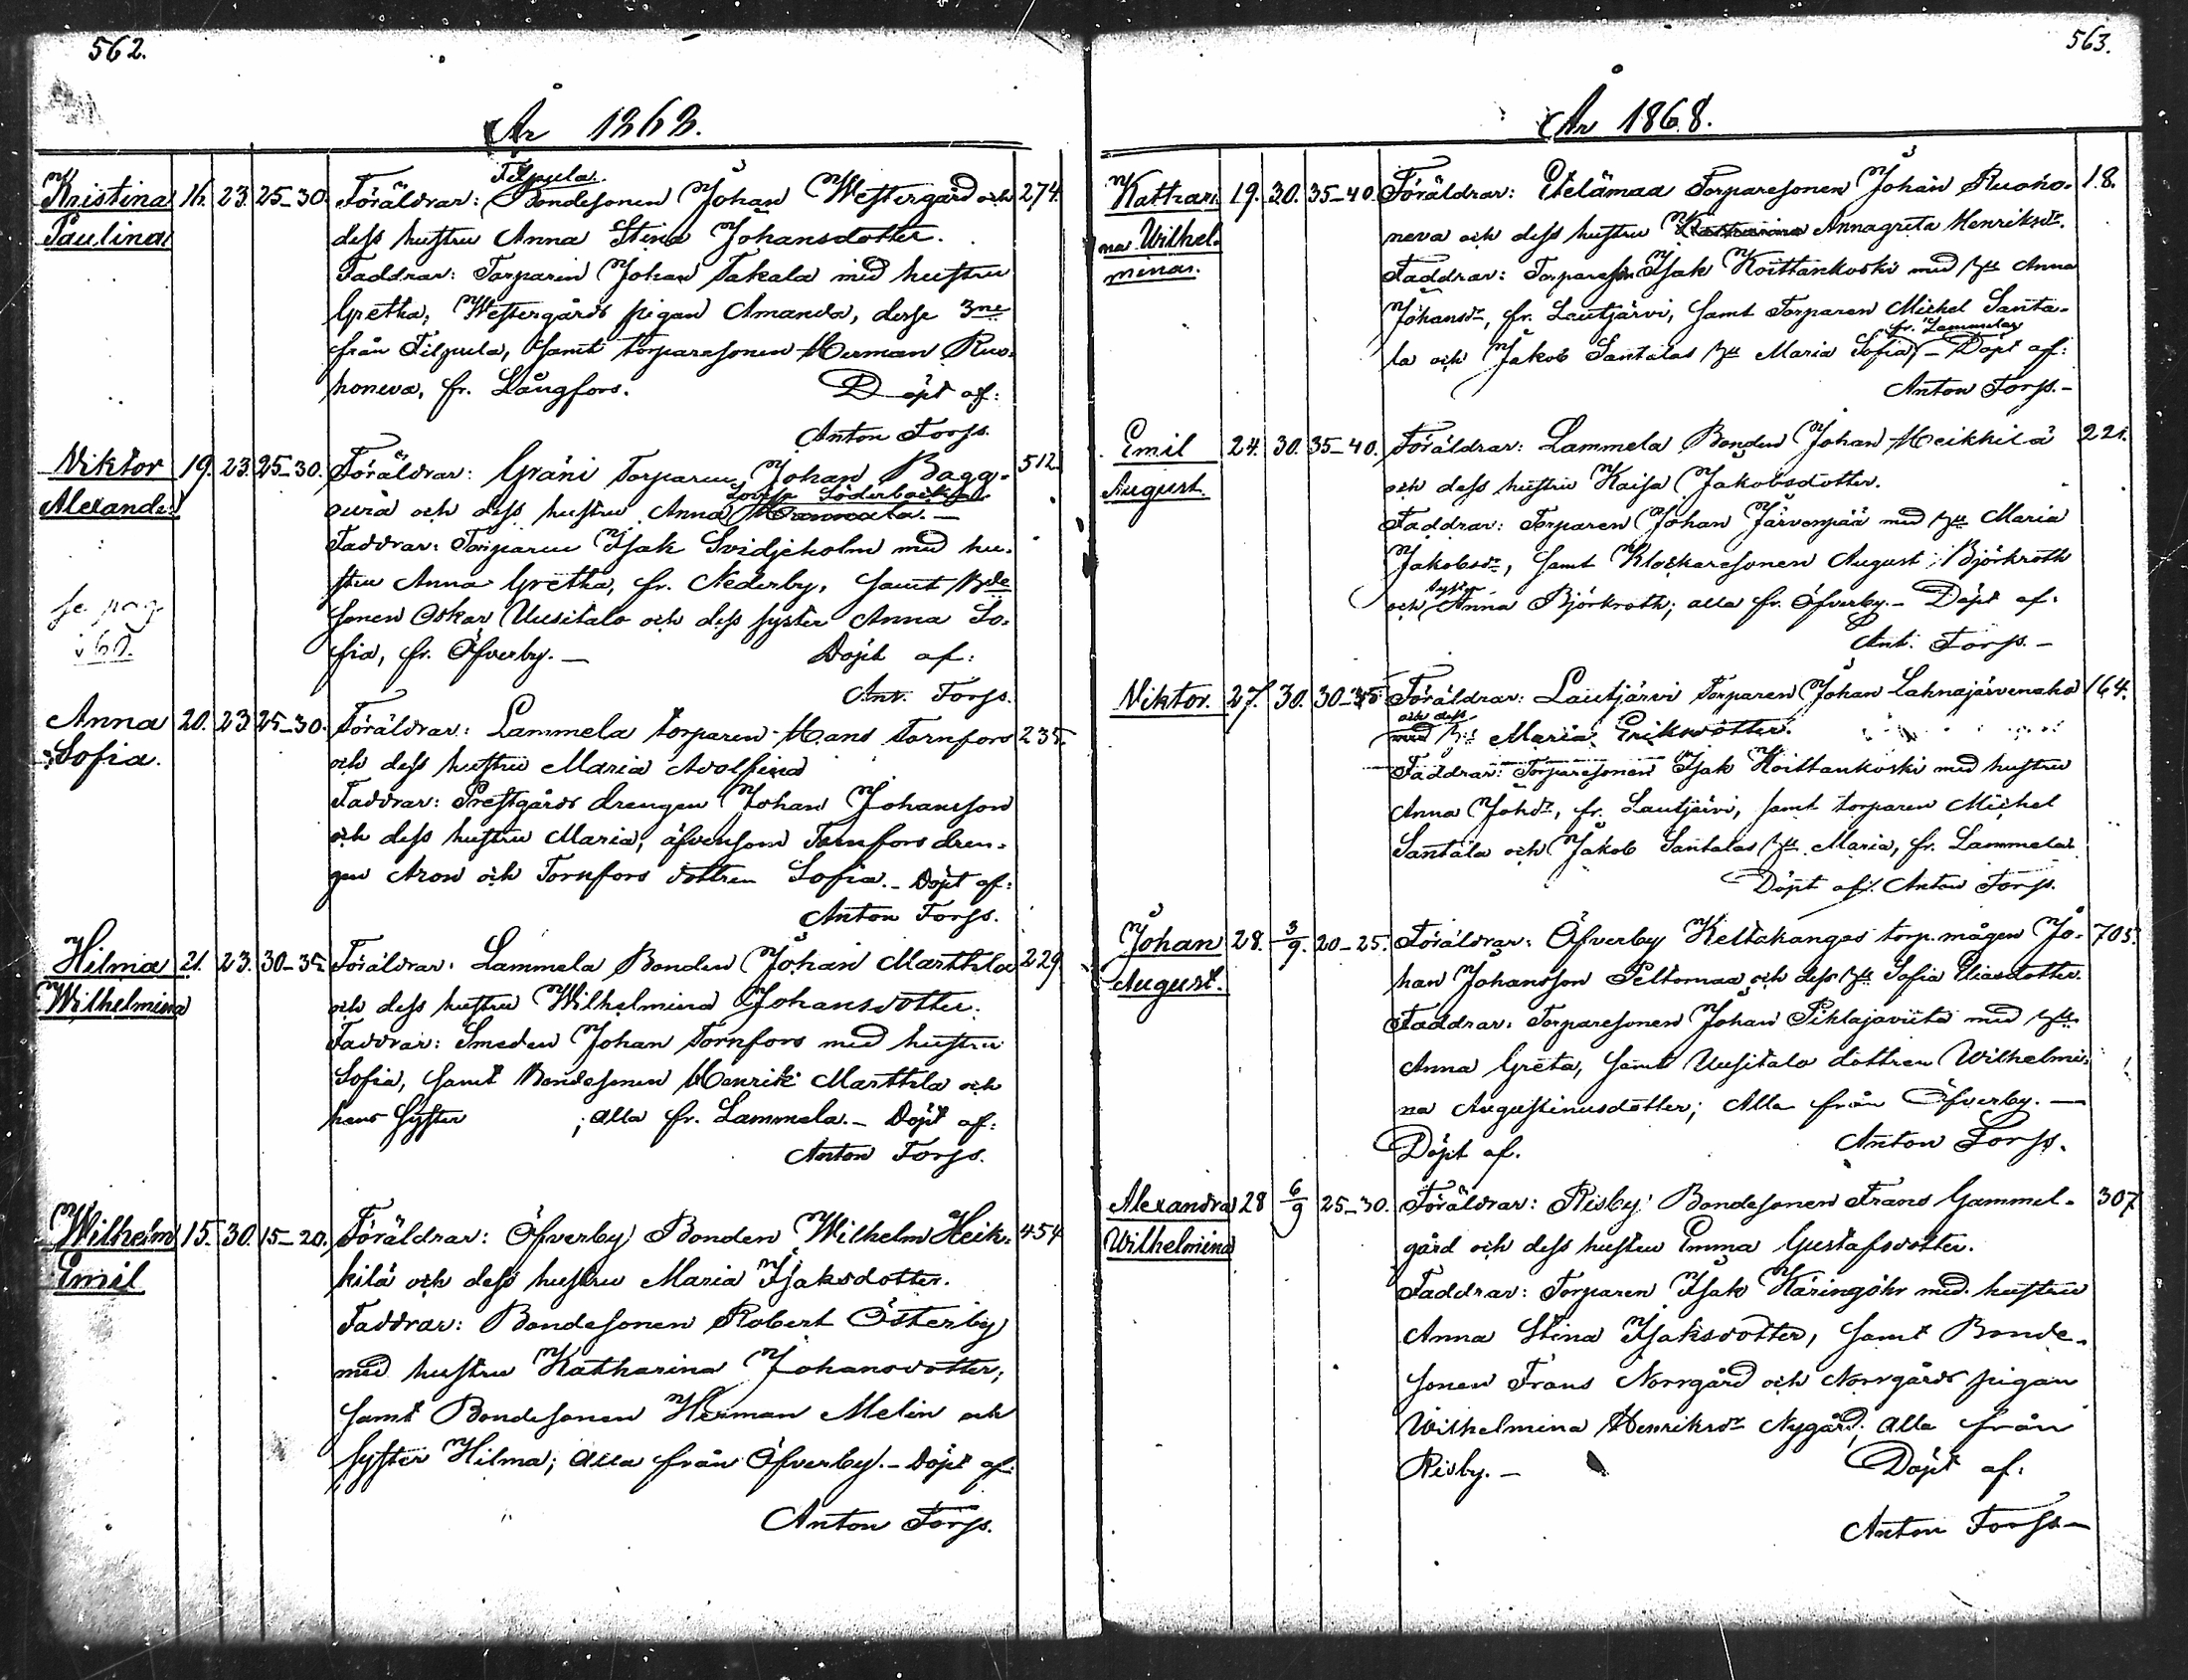 562.
År 1868.
Kristina 16. 23. 25–30. Föräldrar: Filpula Bondesonen Johan Westergård och 274.
Paulina dess hustru Anna Stina Johansdotter.
Faddrar: Torparen Johan Takala med hustru
Gretha, Westergårds pigan Amanda, desse 3ne
från Filpula, samt torparesonen Herman Ruo-
honeva, fr. Långfors. Döpt af:
Anton Forss.
Viktor 19. 23. 25–30. Föräldrar: Gräni Torparen Johan Bagg- 512.
Lovisa Söderbacka
Alexander oura och dess hustru Anna –
Faddrar: Torparen Isak Svidjeholm med hu-
stru Anna Gretha, fr. Nederby, samt Bde
se pag. sonen Oskar Uusitalo och dess syster Anna So-
560. fia, fr. Öfverby. – Döpt af:
Ant. Forss.
Anna 20. 23. 25–30. Föräldrar: Lammela torparen Hans Tornfors 235.
Sofia. och dess hustru Maria Adolfina
Faddrar: Prestgårds drengen Johan Johansson
och dess hustru Maria, äfvensom Tornfors dren-
gen Aron och Tornfors dottren Sofia. – Döpt af:
Anton Forss.
Hilma 21. 23. 30–35 Föräldrar: Lammela Bonden Johan Marttila 229
Wilhelmina och dess hustru Wilhelmina Johansdotter.
Faddrar: Smeden Johan Tornfors med hustru
Sofia, samt Bondesonen Henrik Marttila och
hans syster ; alla fr. Lammela. – Döpt af:
Anton Forss.
Wilhelm 15. 30. 15–20. Föräldrar: Öfverby Bonden Wilhelm Heik- 454
Emil kilä och dess hustru Maria Isaksdotter.
Faddrar: Bondesonen Robert Österby
med hustru Katharina Johansdotter,
samt Bondesonen Herman Melin och
syster Hilma; alla från Öfverby. – Döpt af:
Anton Forss.
563.
År 1868.
Kathari- 19. 30. 35–40. Föräldrar: Etelämaa Torparesonen Johan Ruoho- 18.
na Wilhel- neva och dess hustru Katharina Annagreta Henriksdr.
mina. Faddrar: Torpareson Isak Koittankoski med hu Anna
Johansdr, fr. Lautjärvi, samt Torparen Michel Santa-
fr. Lammela
la och Jakob Santalas hu Maria Sofia – Döpt af:
Anton Forss. –
Emil 24. 30. 35–40. Föräldrar: Lammela Bonden Johan Heikkilä 221.
August. och dess hustru Kaisa Jakobsdotter.
Faddrar: Torparen Johan Järvenpää med hu Maria
Jakobsdr, samt Klockaresonen August Björkroth
syster
och Anna Björkroth; alla fr. Öfverby. – Döpt af:
Ant. Forss. –
Viktor. 27. 30. 30–35. Föräldrar: Lautjärvi Torparen Johan Lahnajärvenaho 164.
och dess
med hu Maria Eriksdotter.
Faddrar: Torparesonen Isak Koittankoski med hustru
Anna Johdr, fr. Lautjärvi, samt torparen Michel
Santala och Jakob Santalas hu Maria, fr. Lammela
Döpt af: Anton Forss.
Johan 28. 3/9. 20–25. Föräldrar: Öfverby Keltakangas torp. mågen Jo- 705.
August. han Johansson Peltomaa och dess hu Sofia Eliasdotter.
Faddrar: Torparesonen Johan Pihlajaviita med hu
Anna Greta, samt Uusitalo dottren Wilhelmi-
na Augustinusdotter; Alla från Öfverby. –
Döpt af. Anton Forss.
Alexandra 28 6/9 25–30. Föräldrar: Risby Bondesonen Frans Gammel- 307
Wilhelmina gård och dess hustru Emma Gustafsdotter.
Faddrar: Torparen Isak Käringöhr med hustru
Anna Stina Isaksdotter, samt Bonde-
sonen Frans Norrgård och Norrgårds pigan
Wilhelmina Henriksdr Nygård; alla från
Risby. – Döpt af:
Anton Forss –